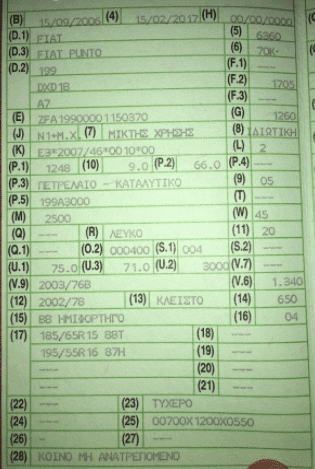 (B) 15/09/2006 (4) 15/02/2017 (H) 00/00/0000
(D.1) FIAT (5) 6360
(D.3) FIAT PUNTO (6) 70K-
(D.2) 199 (F.1) ----
DXD1B (F.2) 1705
A7 (F.3) ----
(E) ZFA19900001150370 (G) 1260
(J) N1+M.X. (7) ΜΙΚΤΗΣ ΧΡΗΣΗΣ (8) ΙΔΙΩΤΙΚΗ
(K) E3*2007/46*0010*00 (L) 2
(P.1) 1248 (10) 9.0 (P.2) 66.0 (P.4) ----
(P.3) ΠΕΤΡΕΛΑΙΟ - ΚΑΤΑΛΥΤΙΚΟ (9) 05
(P.5) 199A3000 (T) ----
(M) 2500 (W) 45
(Q) ---- (R) ΛΕΥΚΟ (11) 20
(Q.1) ---- (O.2) 000400 (S.1) 004 (S.2) ----
(U.1) 75.0 (U.3) 71.0 (U.2) 3000 (V.7) ----
(V.9) 2003/76B (V.6) 1.340
(12) 2002/78 (13) ΚΛΕΙΣΤΟ (14) 650
(15) BB ΗΜΙΦΟΡΤΗΓΟ (16) 04
(17) 185/65R15 88T (18) ----
195/55R16 87H (19) ----
---- (20) ----
---- (21) ----
(22) ---- (23) ΤΥΧΕΡΟ
(24) ---- (25) 00700X1200X0550
(26) - (27) ----
(28) ΚΟΙΝΟ ΜΗ ΑΝΑΤΡΕΠΟΜΕΝΟ